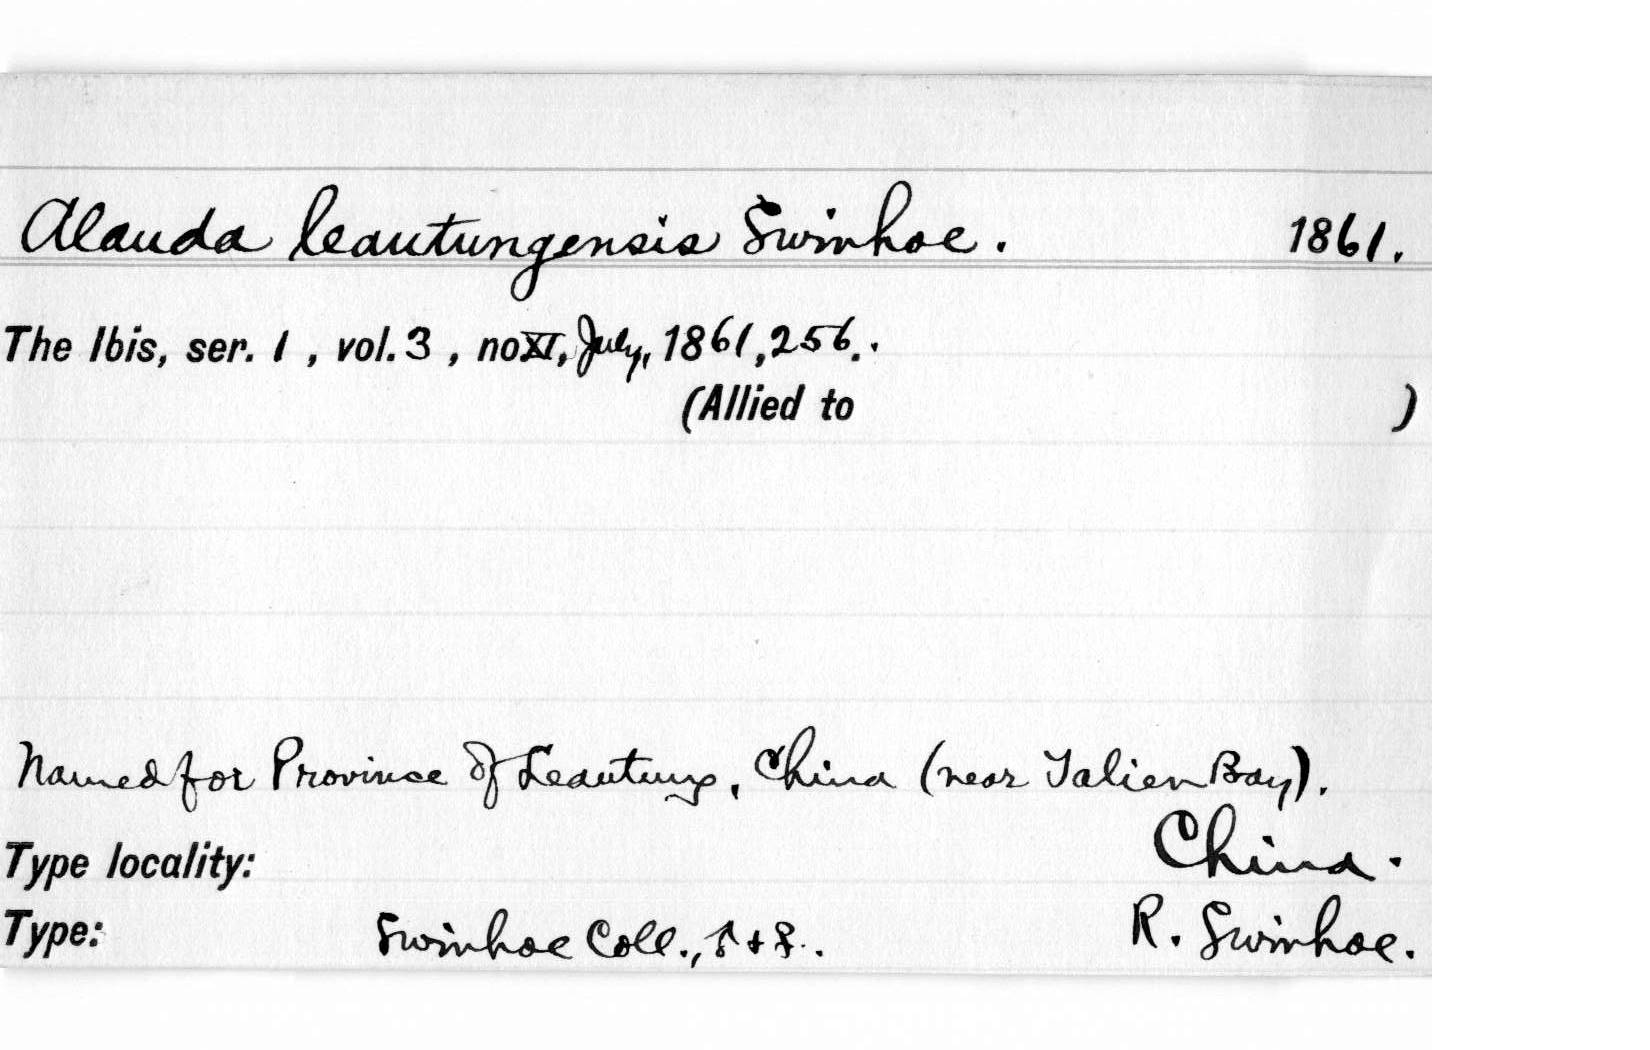 Alauda leautungensis Swinhoe. 1861.
The Ibis, ser. 1, vol. 3, no XI, July, 1861, 256..
(Allied to )
Named for Province of Leautung, China (near Talien Bay).
China.
Type locality:
Type: Swinhoe Coll., ♂ + ♀. R. Swinhoe.